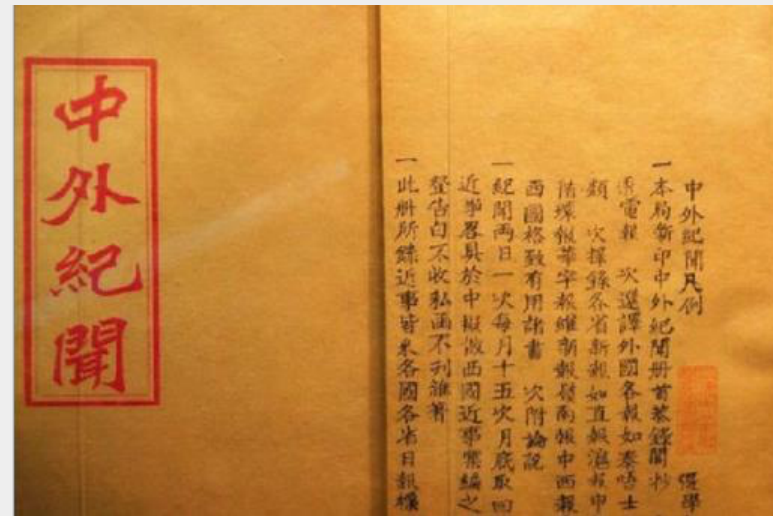 中外紀聞
中外紀聞凡例 彊學
一本局新印中外紀聞册首恭錄閣抄
電報 次選譯外國各報如泰晤士
類 次擇錄各省新報如直報滬報申
環報華字報維新報嶺南報中西報
西國格致有用諸書 次附論說
一紀聞兩日一次每月十五次月底取回
近事畧具於中擬倣西國近事彙編之
登告白不收私函不刊雜著
一此册所錄近事皆采各國各省日報標